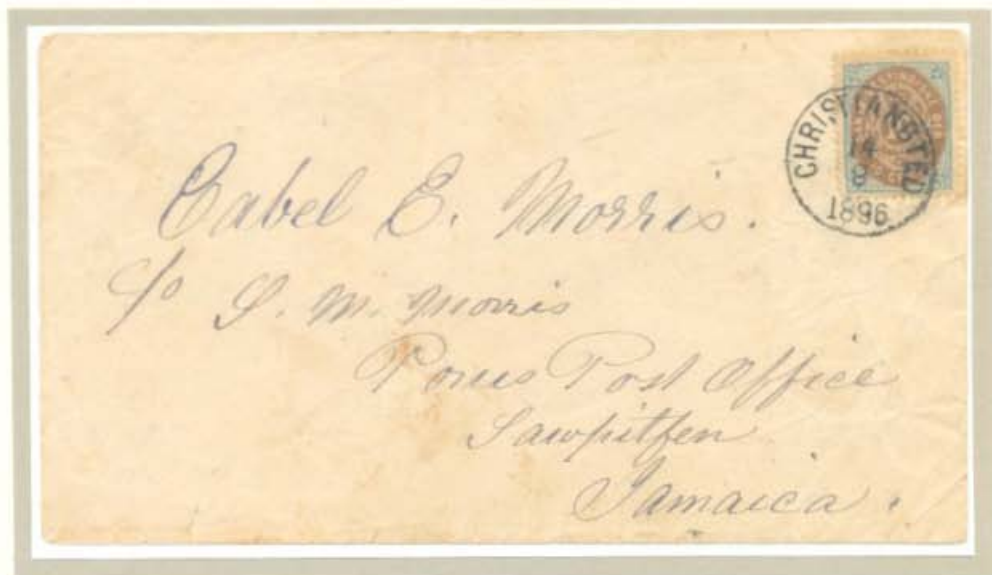 CHRISTIANSTED
14
2
1896
Cabel E. Morris.
c/o S. M. Morris
Porus Post Office
Sawpitfen
Jamaica.